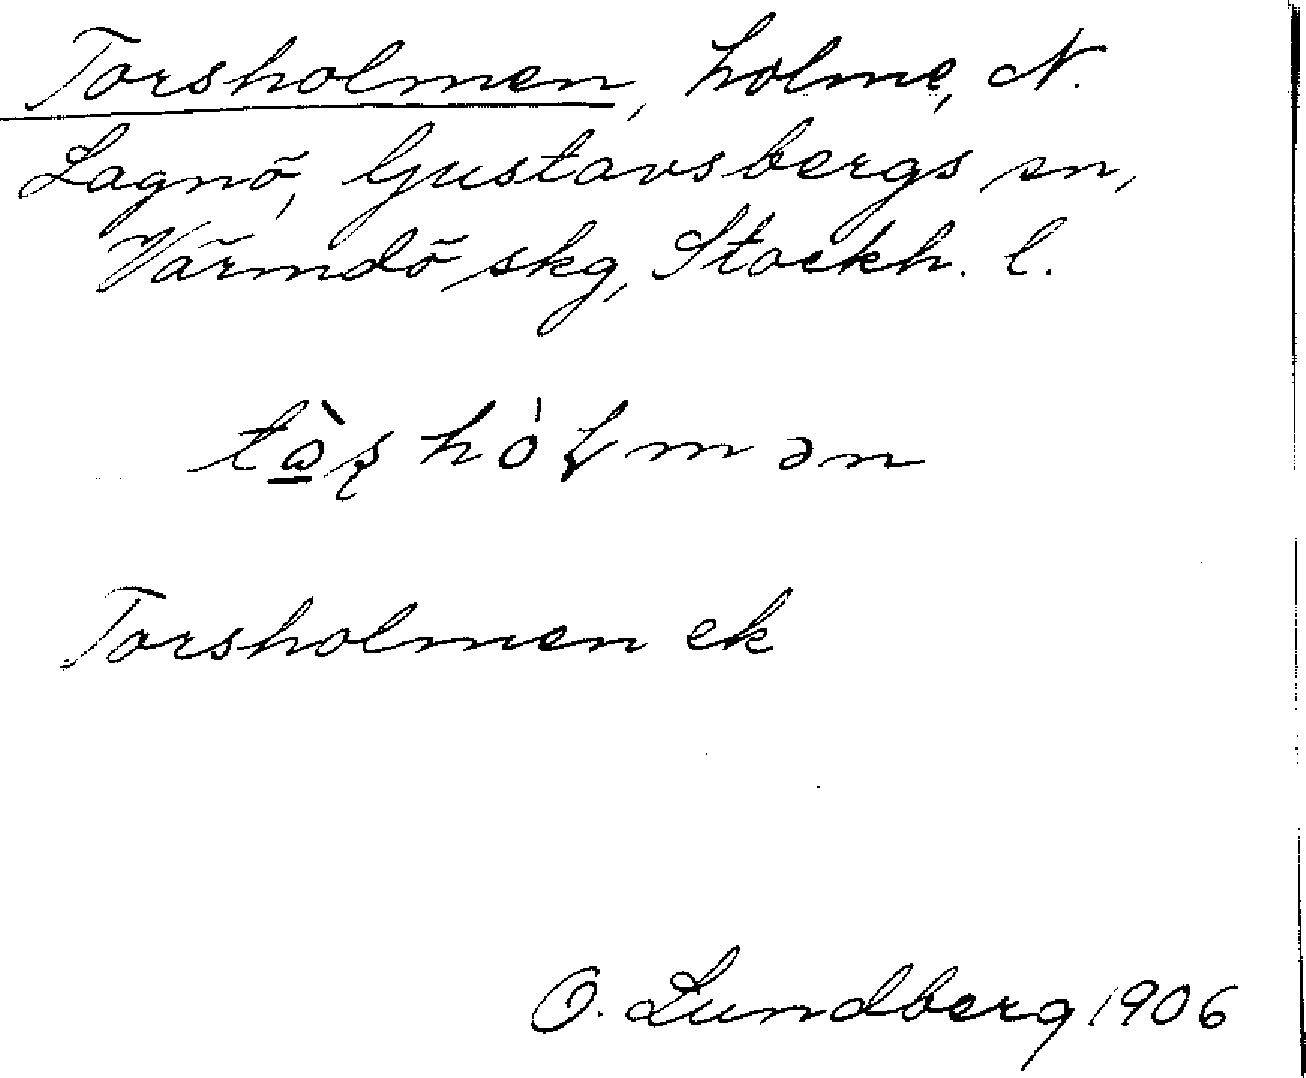 Torsholmen, holme, N.
Lagnö, Gustavsbergs sn,
Värmdö skg, Stockh. l.
Torsholmen ek
O. Lundberg 1906